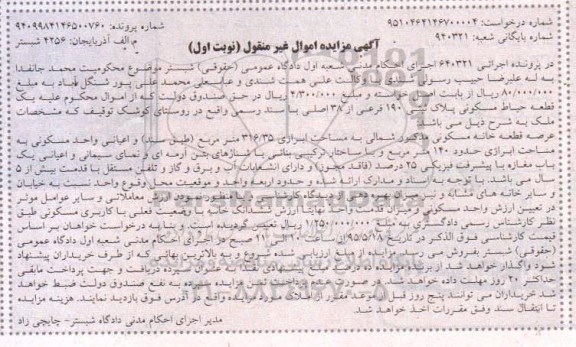 شماره درخواست: ۹۵۱۰۴۶۲۱۴۶۷۰۰۰۰۴ شماره پرونده: ۹۴۰۹۹۸۴۱۴۶۵۰۰۷۶۰
شماره بایگانی شعبه: ۹۴۰۳۲۱ م.الف آذربایجان: ۴۲۵۶ شبستر
آگهی مزایده اموال غیر منقول (نوبت اول)
در پرونده اجرائی ۶۴۰۳۲۱ اجرای احکام مدنی شعبه اول دادگاه عمومی (حقوقی) شبستر موضوع محکومیت محمد جانفدا
به له علیرضا حبیب رسولی سندی با وکالت علی همت سندی و عباسعلی محمد علی پور شنگل آباد به مبلغ
۸۰/۰۰۰/۰۰۰ ریال از بابت اصل خواسته و مبلغ ۴/۳۰۰/۰۰۰ ریال در حق صندوق دولت که از اموال محکوم علیه یک
قطعه حیاط مسکونی پلاک ۱۹۰ فرعی از ۳۸ اصلی با سند رسمی واقع در روستای کوشک توقیف که مشخصات
ملک به شرح ذیل می باشد
عرصه قطعه خانه مسکونی مذکور شمالی به مساحت ابرازی ۳۱۶/۳۵ متر مربع (طبق سند) و اعیانی واحد مسکونی به
مساحت ابرازی حدود ۱۴۰ متر مربع و با ساختار ترکیبی بنائی با شناژهای بتن آرمه ای و نمای سیمانی و اعیانی یک
باب مغازه با پیشرفت فیزیکی ۲۵ درصد (فاقد مجوز) و دارای انشعابات آب و برق و گاز و تلفن مستقل با قدمت بیش از ۵
سال می باشد. با توجه به اسناد و مدارک ارائه شده و حدود اربعه واحد و موقعیت محل وقوع واحد نسبت به خیابان
و سایر خانه های مشابه و معاملاتی و سایر عوامل موثر
در تعیین ارزش واحد مسکونی و میزان قدمت واحد نهایتا ارزش ششدانگ خانه با وضعیت فعلی با کاربری مسکونی طبق
نظر کارشناس رسمی دادگستری به مبلغ ۱/۲۵۰/۰۰۰/۰۰۰ ریال تعیین گردیده است. و بنا به درخواست خواهان بر اساس
قیمت کارشناسی فوق الذکر در تاریخ ۹۵/۵/۱۸ از ساعت ۲۰ الی ۲۱ صبح در اجرای احکام مدنی شعبه اول دادگاه عمومی
(حقوقی) شبستر بفروش می رسد مزایده از مبلغ ارزیابی شده شروع و به بالاترین بهائی که از طرف خریداران پیشنهاد
شود واگذار خواهد شد. از برنده مزایده ده درصد مبلغ پیشنهادی نقدا به عنوان سپرده دریافت و جهت پرداخت مابقی
حداکثر ۲۰ روز مهلت داده خواهد شد. در صورت عدم پرداخت ثمن مزایده سپرده به نفع صندوق دولت ضبط خواهد
شد خریداران می توانند پنج روز قبل از موعد مقرر از املاک مورد مزایده واقع در آدرس فوق بازدید نمایند. هزینه مزایده
تا انتقال سند وفق مقررات اخذ خواهد شد.
مدیر اجرای احکام مدنی دادگاه شبستر- چایچی زاد